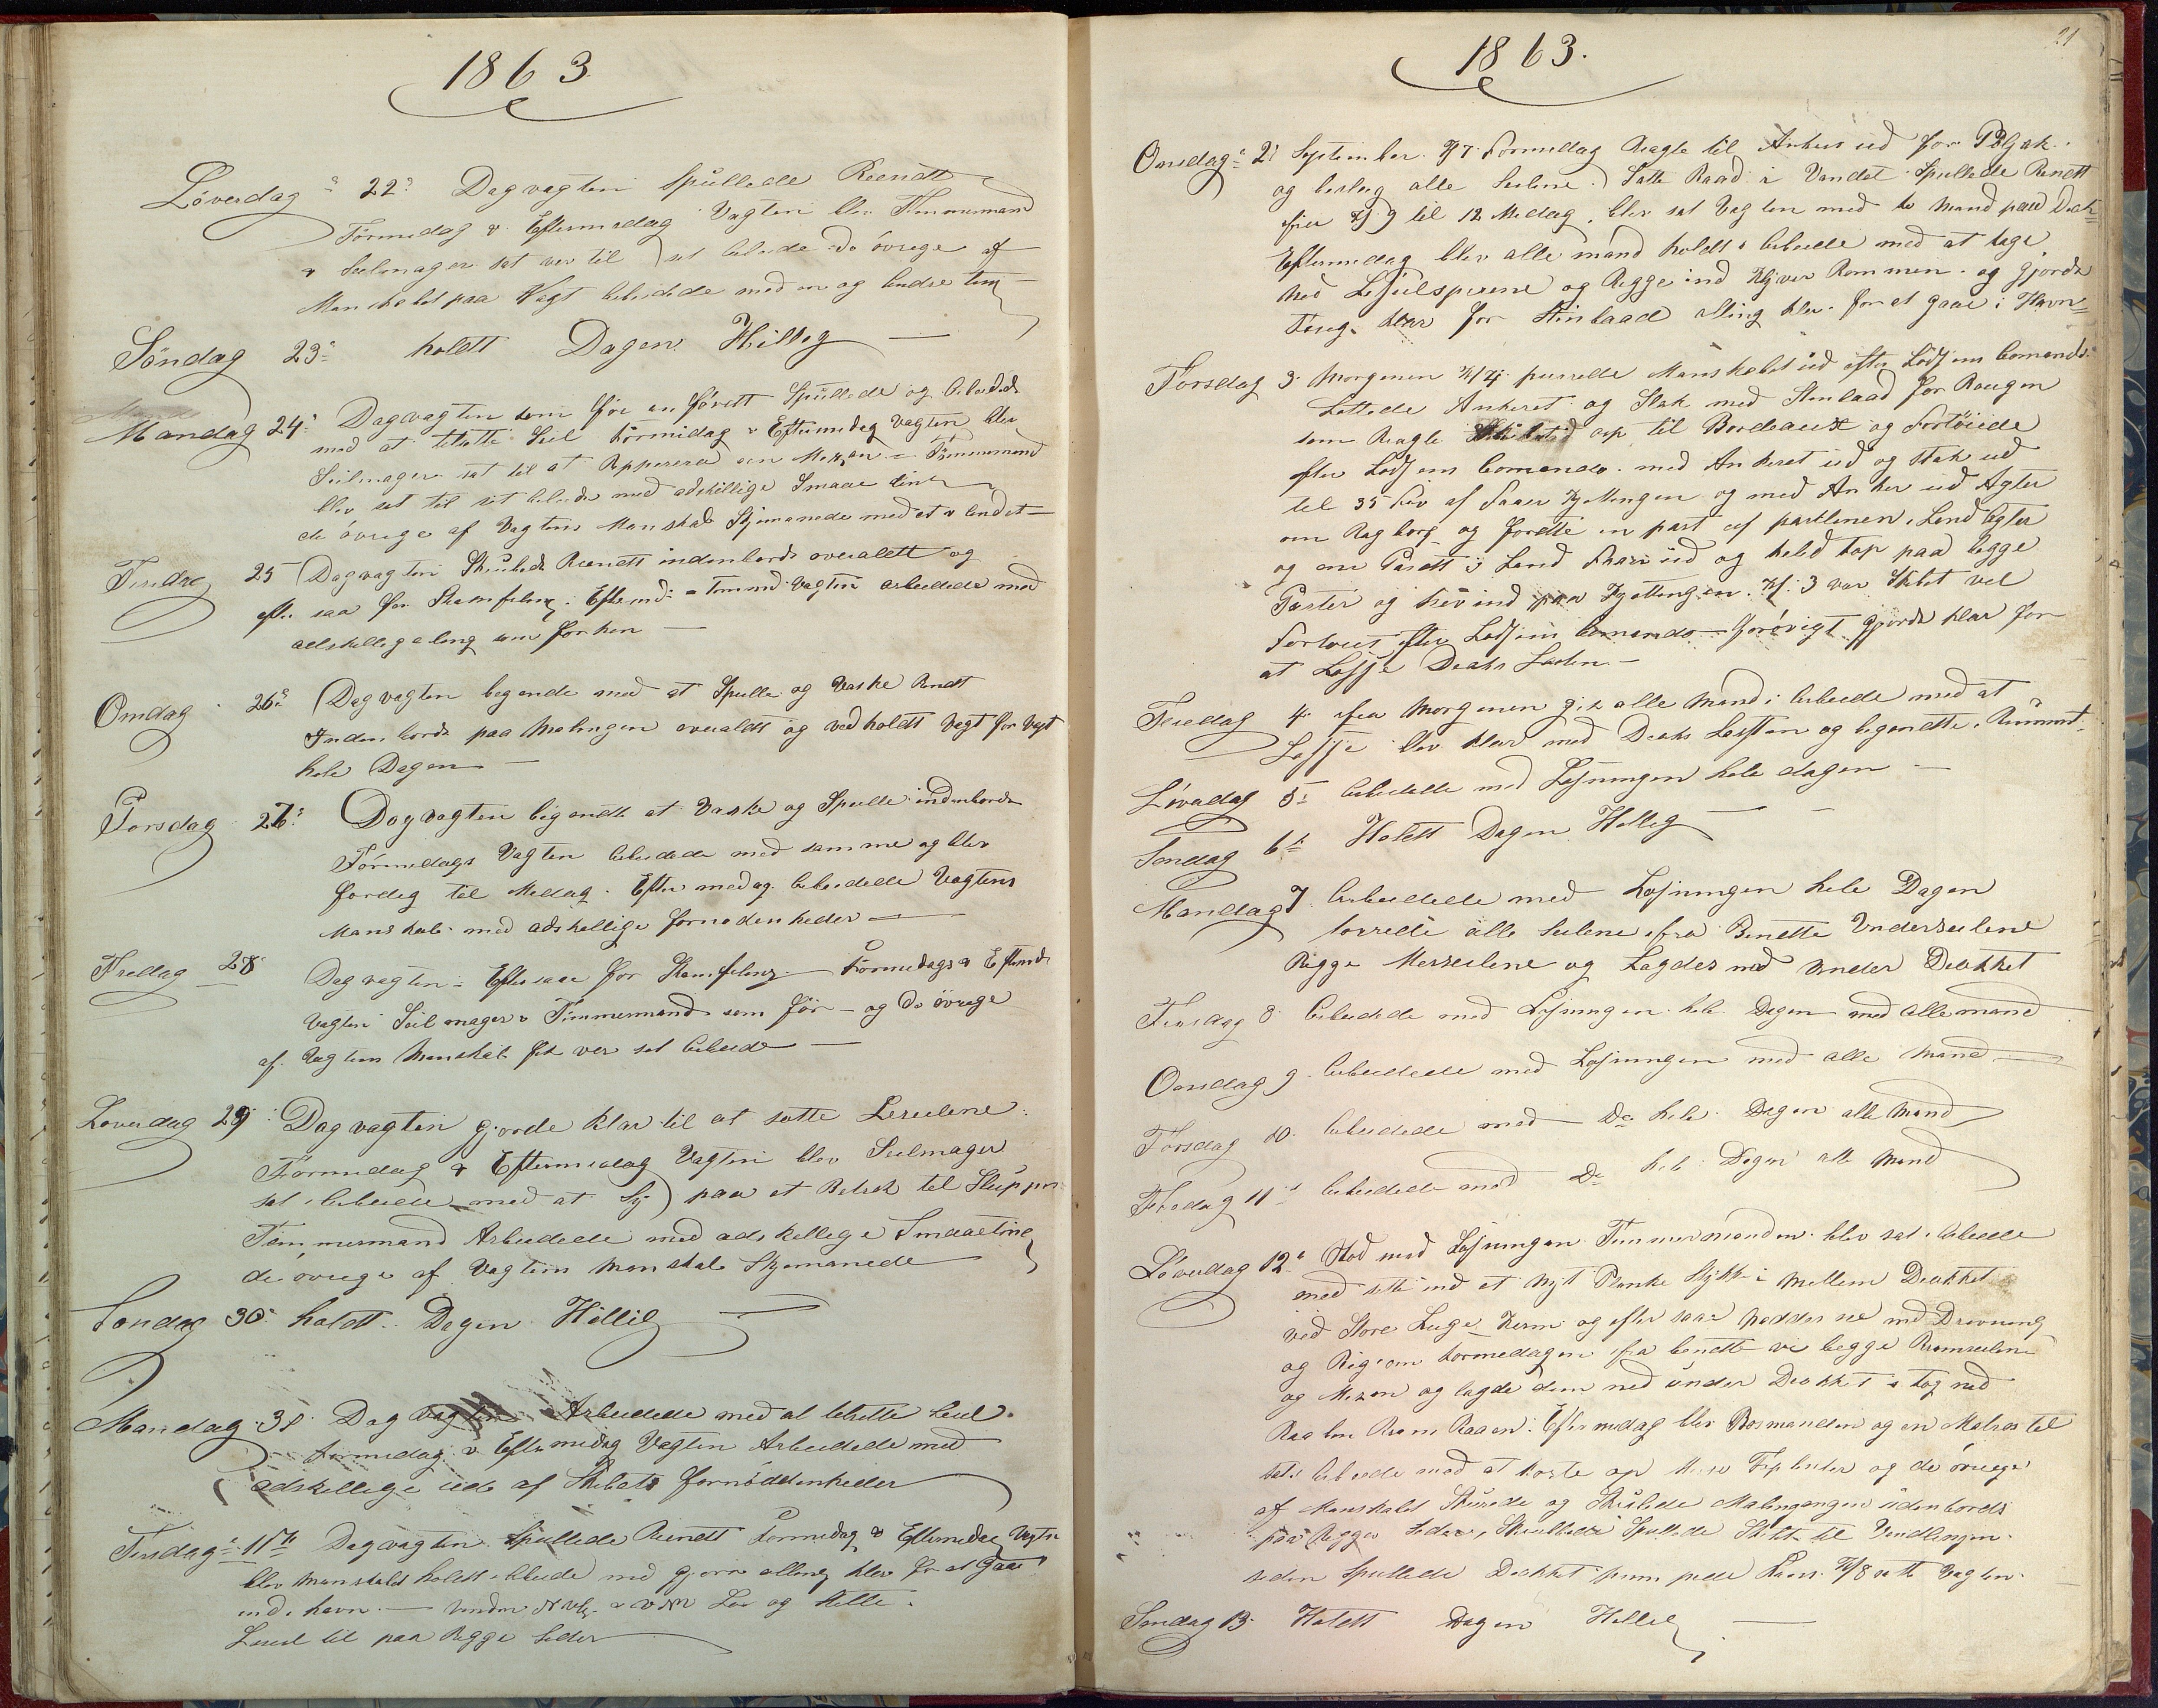 1863
Löverdag 22 Dagvagten Spullede Reendt
Formedag & Eftermedag Vagten blev Timmermand
& Seilmager sat ver til sit arbeide do övrige af
Manskabet paa Vagt arbeidede med en og andre ting
Söndag 23 holdt Dagen Hillig
Mandag 24 Dagvagten som för en förett Spullede og arbeidede
med at tilsette Seil Formidag & Eftermedag Vagten blev
Seilmager sat til at Repperera en Mesan Timmermand
blev sat til sit arbeide med adskillige Smaae tin
de övrige af Vagtens Manskab Skjemanede med et & andet
Tirsdag 25 Dagvagten Skulede Reendt indenbords overaldt og
efter saa for Skamfeling. Efterm & Formd Vagten arbeidede med
adskellige ting som forhen
Onsdag 26 Dagvagten begende med at Spulle og Vaske Rendt
Inden bords paa Malingen overaldt og ved holdt Vagt for Vagt
hele Dagen
Torsdag 27 Dagvagten begendte at Vaske og Spulle indenbords
Formedags Vagten arbeidede med samme og blev
fordig til Medag. Efter medag arbeidede Vagtens
Manskab med adskellige fornodenheder
Fredag 28 Dagvagten Eftersaae for Skamfeling Formedags & Eftermd
Vagten Seilmager & Timmermand som för og do övrige
af Vagtens Manskab fik ver sit arbeide
Loverdag 29 Dagvagten gjorde klar til at sette Leseilene
Formedag & Eftermedag Vagten blev Seilmager
sat i Arbeide med at Sy paa et Betrek til Sluppen
Tömmermand Arbeidede med adskellige Smaaeting
de ovrige af Vagtens Manskab Skjemanede
Sondag 30 holdt Dagen Hellig
Mandag 31 Dagvagten Arbeidede med at tilsette Seil
Formedag & Eftermedag Vagten Arbeidede med
adskellige ude af Skibets fornöddenheder
Tirsdag 1st Dagvagten Spullede Reendt Formedag & Eftermedag Vagten
blev manskabet holdt i Arbeide med gjorre alting klar for at Gaae
ind i havn
Leseil til paa begge Seder
1863.
21
Onsdag 2 September. Kl 7 Formedag Reagte til Ankers ud for
og beslog alle Seilene. Satte Baad i Vandet Spullede Rendt
fra Kl 9 til 12 Medag, blev sat Vagten med to Mand paa Dæk
Eftermedag blev alle mand holdt i arbeide med at tage
ned Leseilsperene og Regge ind Klyver Bommen og gjorde
klar for Stinbaad alting klar for at gaae i Havn
Torsdag 3 Morgenen Kl 4 purrede Manskabet ud efter Lodsens Comando
Lettede Ankeret og Slak med Stinbaad for Baugen
som Reagte op til Bordeaux og Fortöiede
efter Lodsens Comando med Ankeret ud og Stak ud
til 35 Favn af Kjettingen og med Anker ud Agter
om Bagborg og Fordte en part af partlinen i Land Agter
og en Parett i Land ud og hebet tap paa begge
Parter og hev ind paa Kjettingen. Kl 3 var Skibet vel
Fortöiet efter Lodsens Comando Forövrigt gjorde klar for
at Losse Dæks Laden
Fredag 4 fra Morgenen gik alle Mand i arbeide med at
Losse blev klar med Dæks Lasten og begendte i Rummet
Löverdag 5 arbeidede med Losningen hele dagen
Söndag 6te Holdt Dagen Hellig
Mandag 7 arbeidede med Losningen hele Dagen
torrede alle Seilene fra Bendte Underseilene
Begge Merseilene og Lagdes ned under Dækket
Tirsdag 8 arbeidede med Losningen hele Dagen med alle mand
Onsdag 9 arbeidede med Losningen med alle Mand
Torsdag 10 arbeidede med Do hele Dagen alle Mand
Fredag 11 arbeidede med Do hele Dagen alle Mand
Löverdag 12 Stod med Losningen Timmermanden blev sat i Arbeide
med sette ind et Nyt Planke Stykke i mellem Dækket
ved Store Luge Karm og efter saae Nadder ne med Drevning
og Beg om Formedagen fra bendte vi begge Bramseilene
og Mesan og lagde dem ned under Dækket & tog ned
Raaen. Eftermedag blev Bosmanden og en Matros til
sat i Arbeide med at koste op og de övrige
af Manskabet Skurede og Skulede Malingangen udenbords
paa Begge Seder, Skullede Spullede Skibet til Vandlingen
siden Spullede Dækket pumpede Læns Kl 8 satte Vagten
Söndag 13 Holdt Dagen Hellig